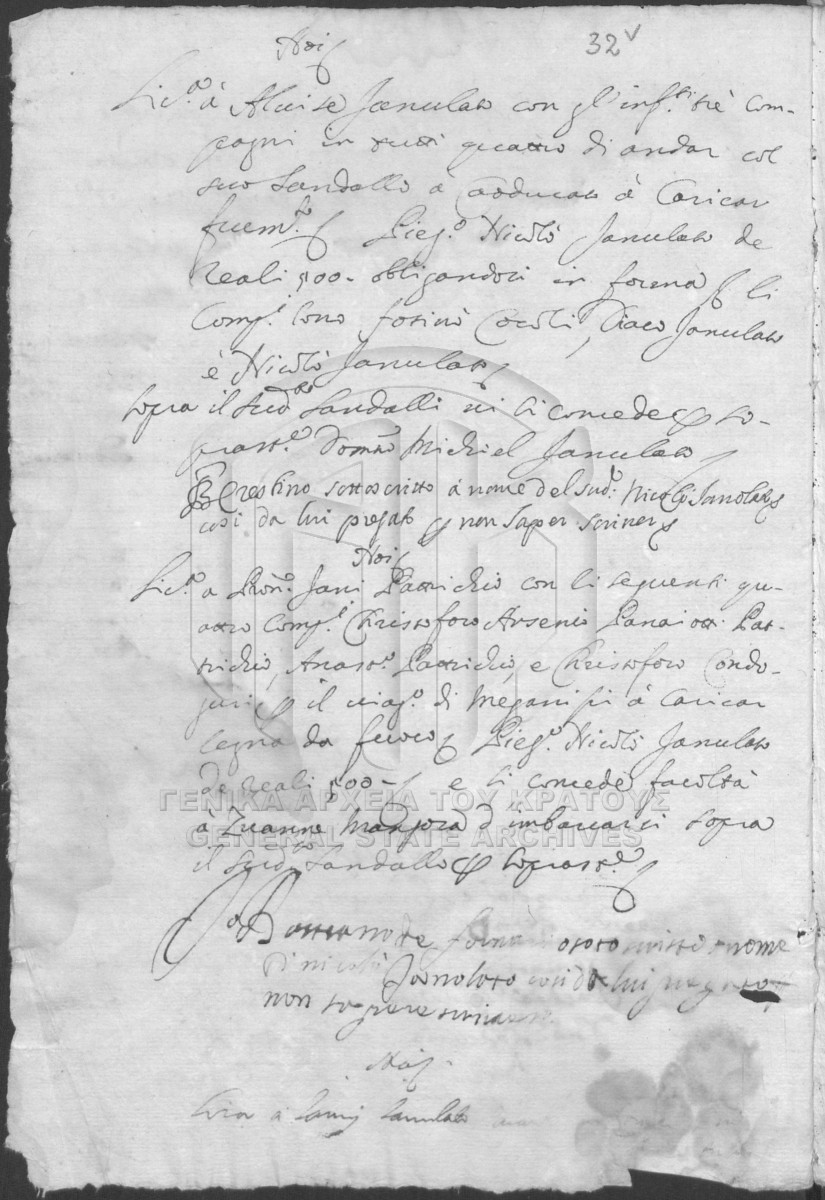 Noi
32v
Lic.a à Aluise Janulato con gl'infti trè Com-
pagni in tutti quattro di andar col
suo Sandallo a à Caricar
Pieg.o Nicolò Janulato de
Reali 500- obligandosi in forma li
Comp.i sono Cocoli, Diaco Janulato
è Nicolò Janulato
sopra il sud.to Sandallo si concede so-
prast.e Michiel Janulato
Crestino sottoscritto à nome del sud.o Nicolò Janolato
così da lui pregato p non saper scriver
Noi
Lic.a a Jani Pattrichio con li seguenti qu-
attro Comp.i Christoforo Arsenio Panaiotti Pat-
trichio, Anast.o Pattrichio, e Christoforo Condo-
guri, p il viag.o di Meganissi à Caricar
legna da fuoco Pieg.o Nicolò Janulato
de Reali 500- e si concede facoltà
à Zuanne d'imbarcarsi sopra
il sud.to Sandallo p soprast.e
ΓΕΝΙΚΑ ΑΡΧΕΙΑ ΤΟΥ ΚΡΑΤΟΥΣ
GENERAL STATE ARCHIVES
Io scrissi a nome
di nicolò Janoloto così da lui pregato
non sapere scrivere
Noi
a Janulato